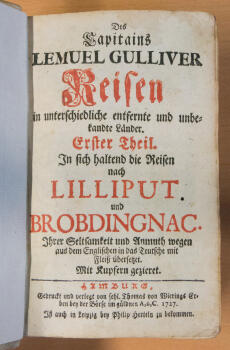 Des
Capitains
LEMUEL GULLIVER
Reisen
in unterschiedliche entfernte und unbe-
kandte Länder.
Erster Theil.
In sich haltend die Reisen
nach
LILLIPUT.
und
BROBDINGNAC.
Ihrer Seltsamkeit und Anmuth wegen
aus dem Englischen in das Teutsche mit
Fleiß übersetzet.
Mit Kupfern gezieret.
HAMBURG,
Gedruckt und verlegt von sehl. Thomas von Wierings Er-
ben bey der Börse im güldnen A,B,C. 1727.
Ist auch in Leipzig bey Philip Herteln zu bekommen.